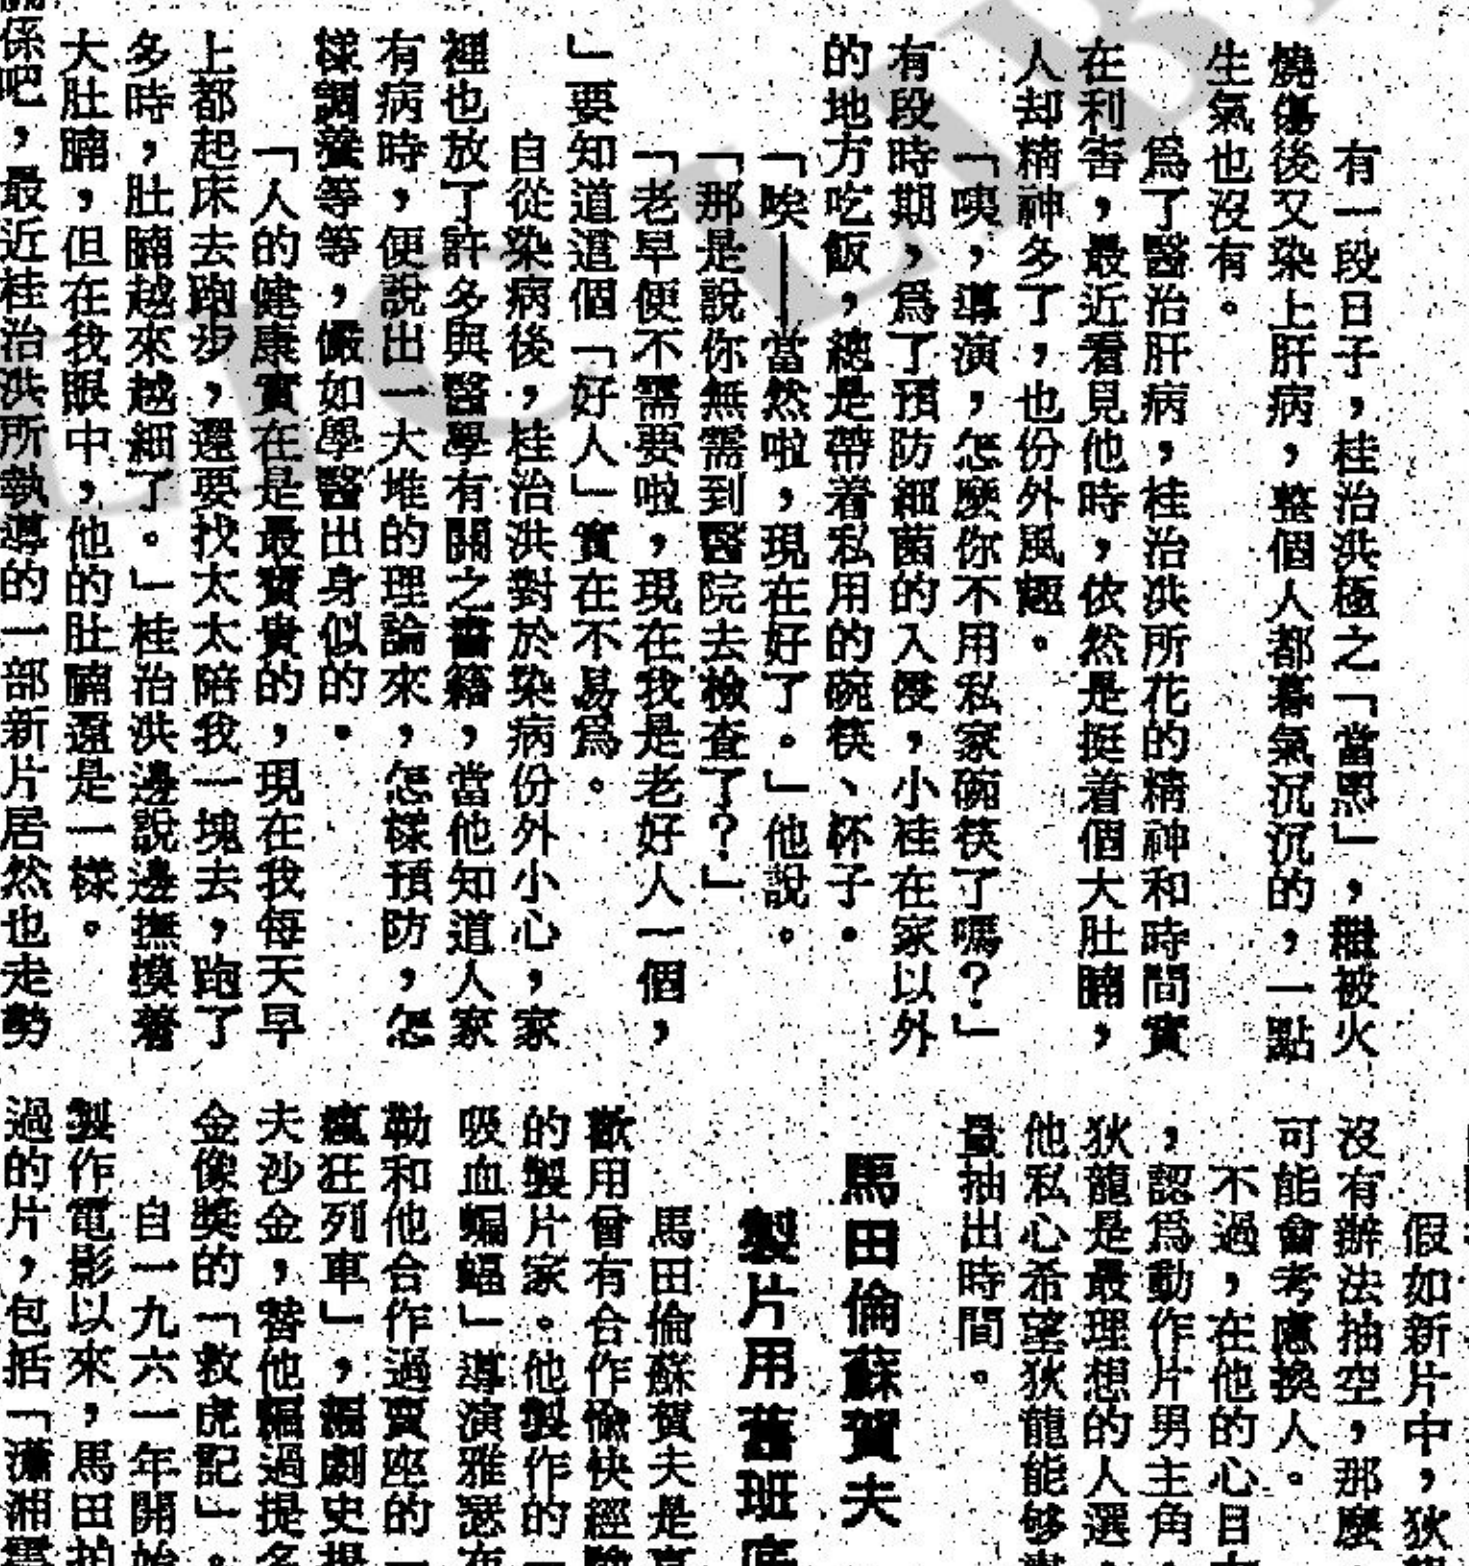 有一段日子，桂治洪極之「當黑」，繼被火
燒傷後又染上肝病，整個人都暮氣沉沉的，一點
生氣也沒有。
爲了醫治肝病，桂治洪所花的精神和時間實
在利害，最近看見他時，依然是挺着個大肚腩，
人却精神多了，也份外風趣。
「咦，導演，怎麼你不用私家碗筷了嗎？」
有段時期，爲了預防細菌的入侵，小桂在家以外
的地方吃飯，總是帶着私用的碗筷、杯子．
「唉——當然啦，現在好了。」他說。
「那是說你無需到醫院去檢查了？」
「老早便不需要啦，現在我是老好人一個，
」要知道這個「好人」實在不易爲。
自從染病後，桂治洪對於染病份外小心，家
裡也放了許多與醫學有關之書籍，當他知道人家
有病時，便說出一大堆的理論來，怎樣預防，怎
樣調養等等，儼如學醫出身似的．
「人的健康實在是最寶貴的，現在我每天早
上都起床去跑步，還要找太太陪我一塊去，跑了
多時，肚腩越來越細了。」桂治洪邊說邊撫摸着
大肚腩，但在我眼中，他的肚腩還是一樣。
係吧，最近桂治洪所執導的一部新片居然也走勢
假如新片中，狄
沒有辦法抽空，那麼
可能會考慮換人。
不過，在他的心目
，認爲動作片男主角
狄龍是最理想的人選
他私心希望狄龍能够
量抽出時間。
馬田倫蘇賀夫
製片用舊班底
馬田倫蘇賀夫是喜
歡用曾有合作愉快經驗
的製片家。他製作的
吸血蝙蝠」導演雅瑟
勒和他合作過賣座的
瘋狂列車」，編劇史提
夫沙金，替他編過提名
金像獎的「救虎記」。
自一九六一年開始
製作電影以來，馬田拍
過的片，包括「瀟湘